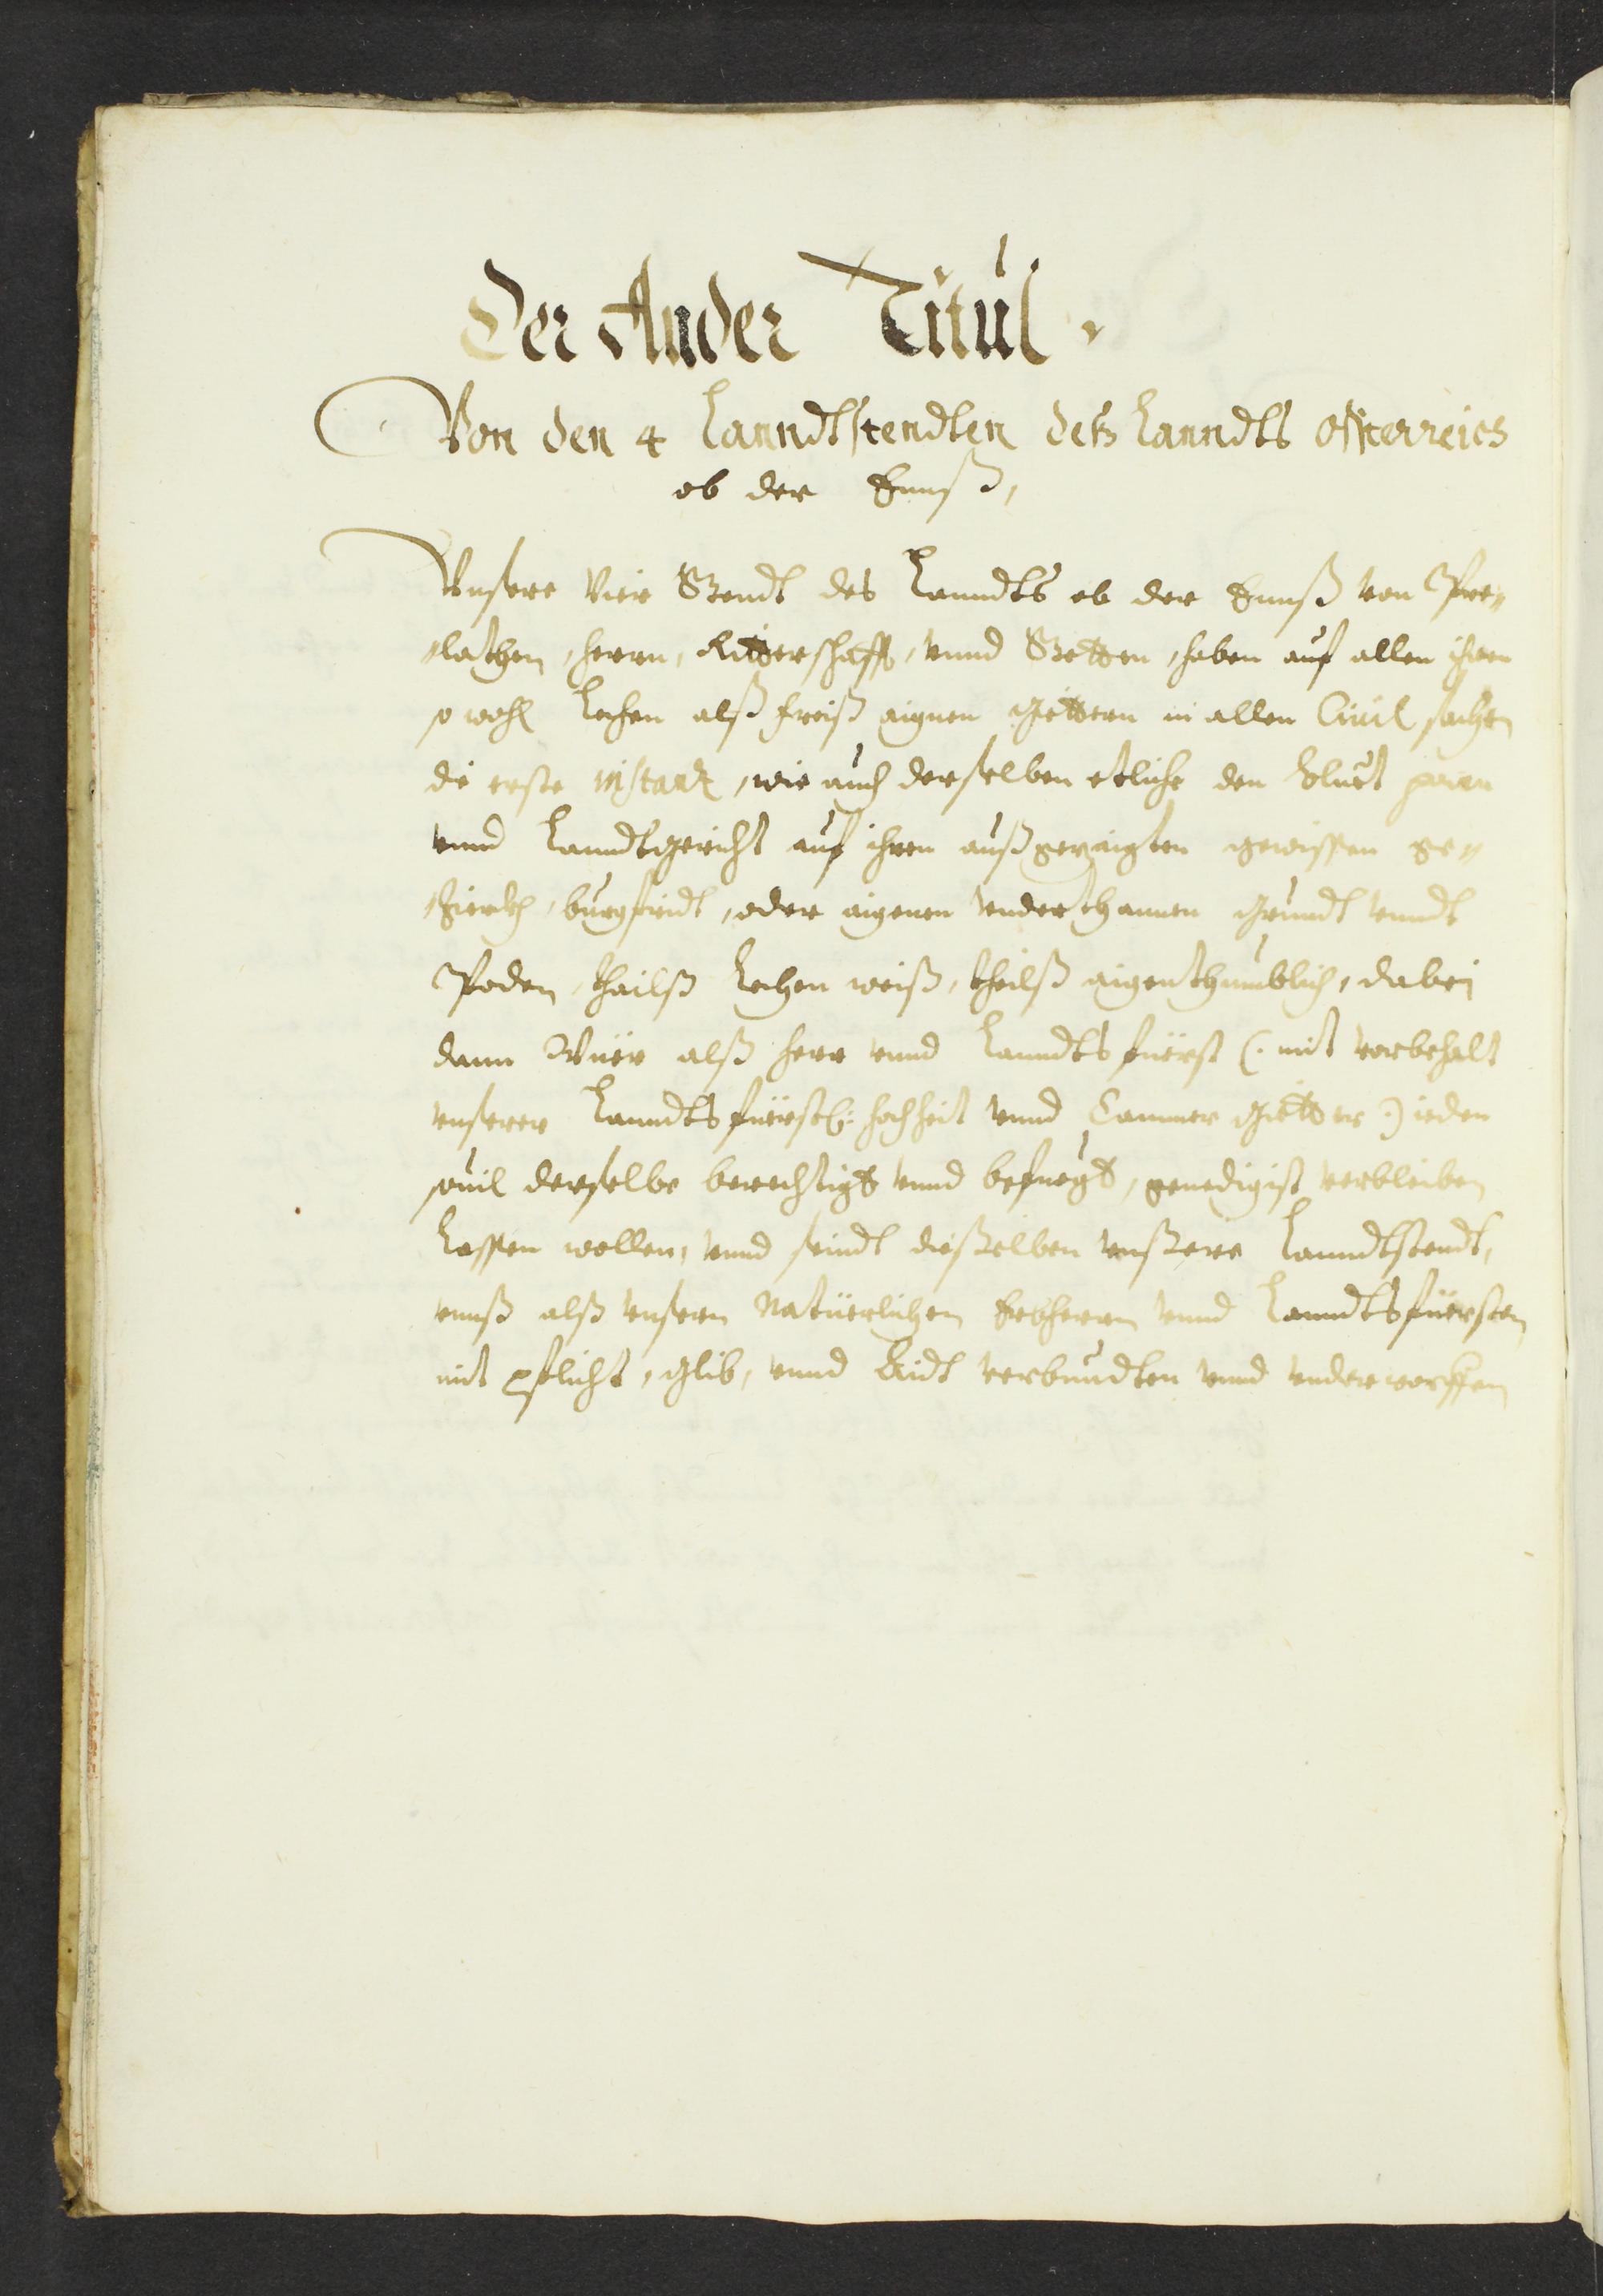 Der Ander Titul.
Von den 4 Lanndtstendten deß Lanndts össterreich
ob der Ennß,
Vnsere Vier Stendt des Lanndts ob der Ennß von Pre„
„lathen, herrn, Ritterschafft, vnnd Stetten, haben auf allen ihren
so wohl Lechen alß freiß aignen Güettern in allen Ciuil sachen
die erste instanz, wie auch derselben etliche den Bluet
vnnd Lanndtgericht auf ihren außgezaigten gewissen ge„
„zierkh, burgfridt, oder aigenen vnderthannen Grundt vnndt
Poden, thailß Lechen weiß, theilß aigenthumblich, dabei
dann Wüer alß herr vnnd Lanndtsfüerst (: mit vorbehalt
vnserer Lanndtsfüerstl: hochheit vnnd Cammer Güetter :) ieden
souil derselbe berechtigt vnnd befuegt, genedigist verbleiben
Lassen wollen, vnnd seindt dieselben vnsere Lanndtstendt,
vnnß alß vnsern Natüerlichen Erbherrn vnnd Lanndtsfüersten
mit pflicht, glib, vnnd Aidt verbundten vnnd vnderworffen